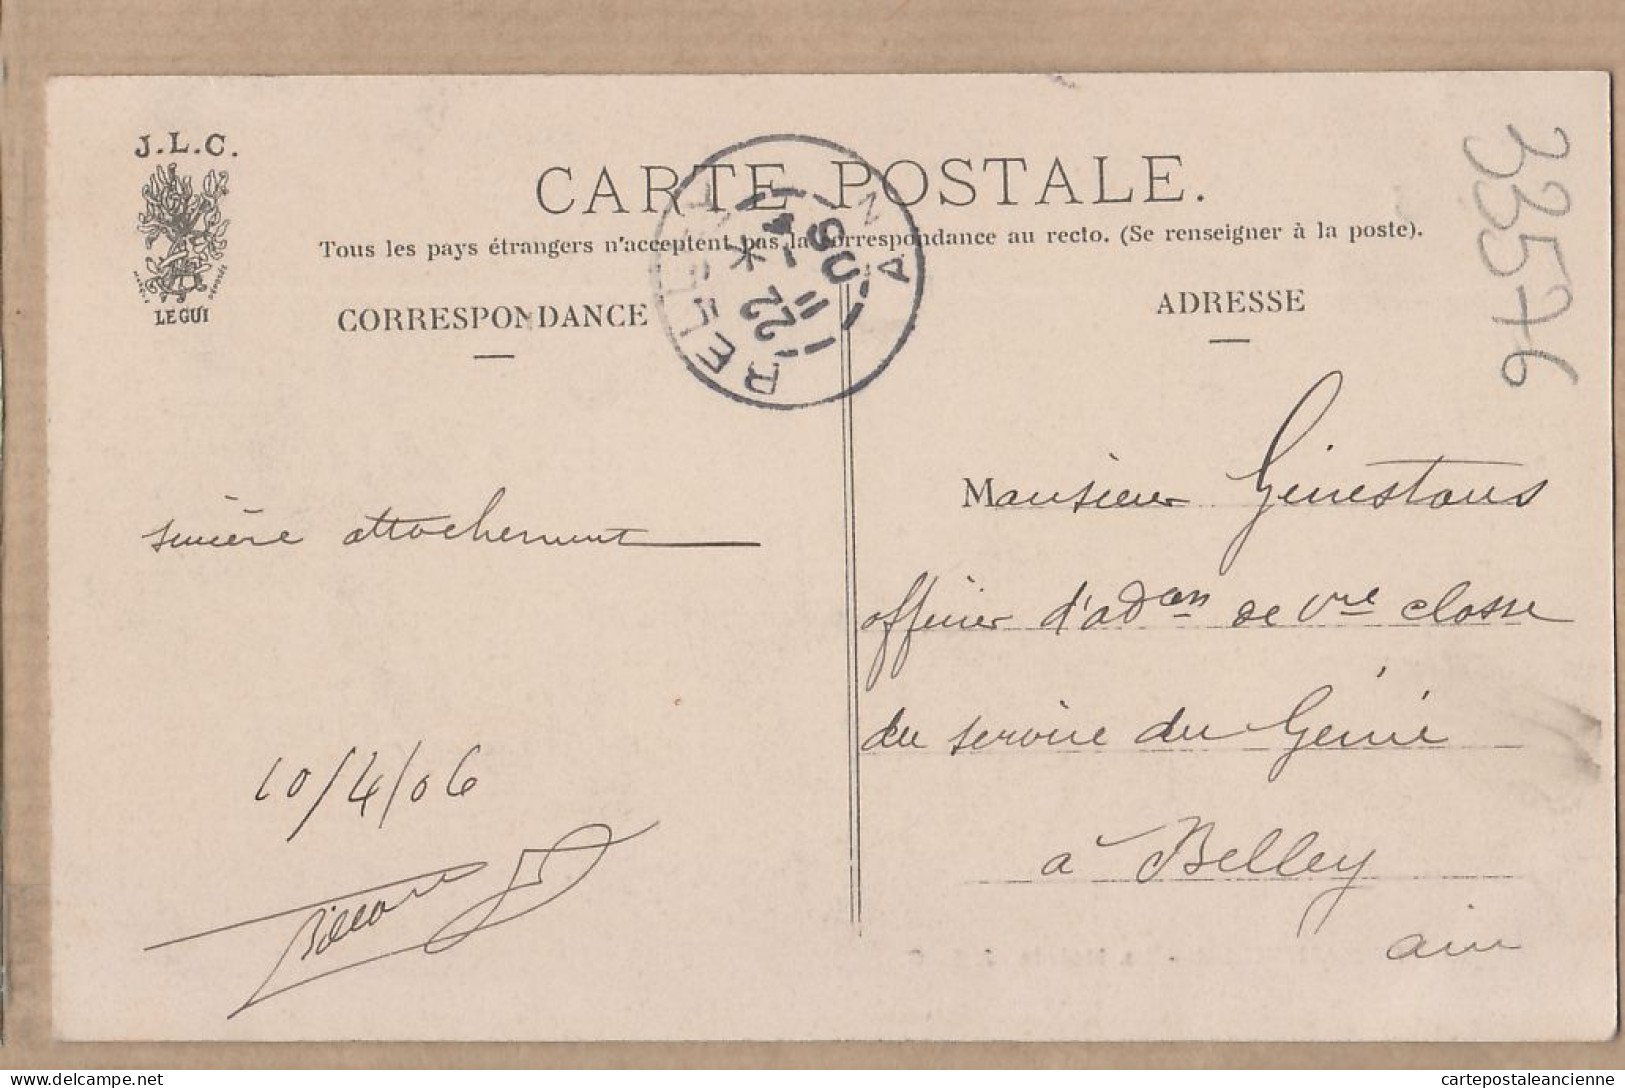 J.L.C.
MARQUE DÉPOSÉE
LE GUI
CARTE POSTALE.
Tous les pays étrangers n'acceptent pas la correspondance au recto. (Se renseigner à la poste).
CORRESPONDANCE
ADRESSE
33576
BELLEY
AIN
22 - 4
06
sincère attachement
10/4/06
Monsieur Ginestous
officier d'adon de 1re classe
du service du Génie
à Belley
ain
delcampe.net
cartepostaleancienne